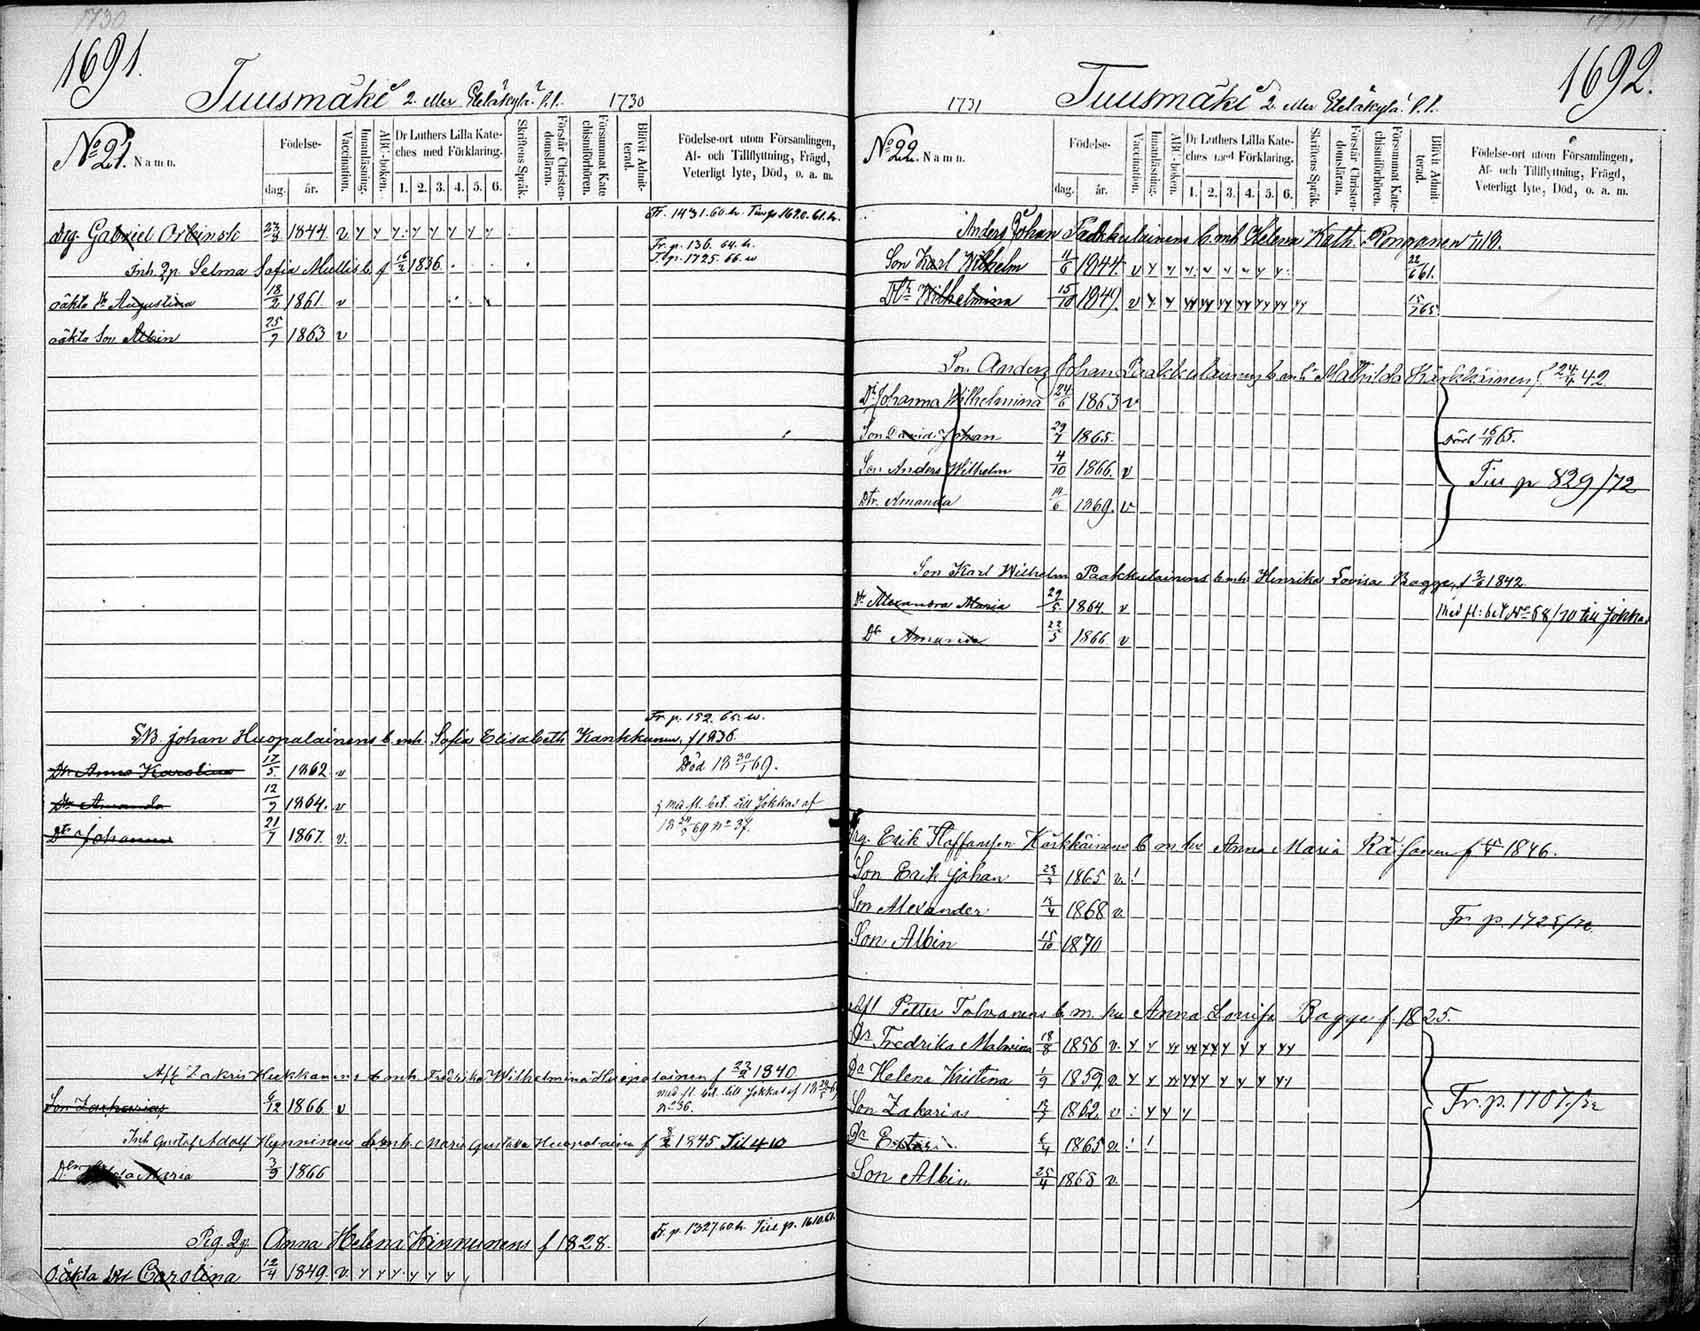 1730
1691.
Tuusmäki 2. eller Eteläkylä. l.l. 1730
No 21. Namn.
Födelse-
dag. år.
Vaccination.
Innanläsning.
ABC-boken.
Dr Luthers Lilla Kate-
ches med Förklaring.
1. 2. 3. 4. 5. 6.
Skriftens Språk.
Förstår Christen-
domsläran.
Försummat Kate
chismiförhören.
Blifvit Admit-
terad.
Födelse-ort utom Församlingen,
Af- och Tillflyttning, Frägd,
Veterligt lyte, Död, o. a. m.
Fr. 1431.60.h. Tusp 1620.61.h.
Drg. Gabriel Orbinsk 23/3 1844 v y y y y y y y y
Fr. p. 136. 64. h.
Inh. Qp Selma Sofia Mullis b. f 16/2 1836
T. p. 1725. 66. w
oäkta Dr Augustina 18/2 1861 v
oäkta Son Albin 25/7 1863 v
Fr. p. 152. 65. w.
Johan Huopalainens b mh. Sofia Elisabeth Kankkunen f 1836
Dtr Anna Karolina 17/5 1862 v Död 18 30/1 69.
Dtr Amanda 12/9 1864. v med fl. bet. till Jokkas af
Dtr Johanna 21/7 1867 v.
Aft Zakris Hukkanens b mh Fredrika Wilhelmina Huopalainen f 23/2 1840
med fl. bet. till Jokkas af
Son Zacharias 6/12 1866 v no 36.
Inh Gustaf Adolf Hynninens b mh Maria Gustava Huopalainen f 8/2 1845 Til 410
Maria 3/9 1866
Fr. p. 1327.60.h. Tus p. 1610.61.
Pig. Qp. Anna Helena Kinnunens f 1828.
Oäkta Dtr Carolina 12/4 1849. v. y y y y y y
1731
1692.
1731 Tuusmäki 2 eller Eteläkylä. l.l.
No 22. Namn.
Födelse-
dag. år.
Vaccination.
Innanläsning.
ABC-boken.
Dr Luthers Lilla Kate-
ches med Förklaring.
1. 2. 3. 4. 5. 6.
Skriftens Språk.
Förstår Christen-
domsläran.
Försummat Kate-
chismiförhören.
Blifvit Admit-
terad.
Födelse-ort utom Församlingen,
Af- och Tillflyttning, Frägd,
Veterligt lyte, Död, o. a. m.
Anders Johan Paakkulainens b mh Helena Kath. Ronganen
Son Karl Wilhelm 11/6 1844. v y y y y y y y y 22/6 61.
Dtr Wilhelmina 15/10 1849. v y y yy yy yy yy yy yy yy 15/7 65
Son Anders Johan Paakkulainens b mh Mathilda Kärkkäinen f 24/4 42
Dr Johanna Wilhelmina 24/6 1863 v
Son David Johan 29/7 1865. Död 16/11 65.
Son Anders Wilhelm 4/10 1866. v
Tus p 829/72
Dtr. Amanda 14/6 1869. v
Son Karl Wilhelm Paakkulainens b mh Henrika Lovisa Bagge, f 3/6 1842
Dr Alexandra Maria 29/5 1864 v Med fl: bet No 68/70 till Jokkas
Dr Amanda 22/5 1866 v
Drg. Erik Staffansson Kärkkäinens b m hu Anna Maria Räisänen f 1846.
Son Erik Johan 1865 v !
Son Alexander 1868 v.
Fr. p. 1725/72.
Son Albin 15/10 1870
Aft Petter Tolvanens b. m. hu Anna Lovisa Bagge f. 1825.
Dr Fredrika Malviina 18/8 1856 v. y y yy yy yy y y y yy
Dr Helena Kristina 1/9 1859 v y y yy yy y y y y yy
Fr. p. 1107/72
Son Zakarias 1862. v : y y y
Dr Ester 6/4 1865 v ! !
Son Albin 25/4 1868 v